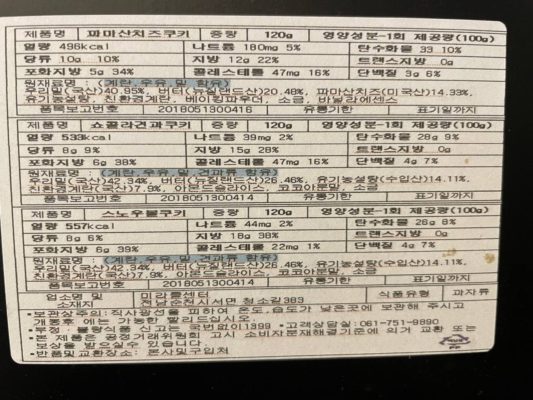 제품명 파마산치즈쿠키 중량 120g 영양성분-1회 제공량(100g)
열량 496kcal 나트륨 180mg 5% 탄수화물 33 10%
당류 10g 10% 지방 12g 22% 트랜스지방 0g
포화지방 5g 34% 콜레스테롤 47mg 16% 단백질 3g 6%
원재료명 : (계란,우유,밀 함유)
우리밀(국산)40.95%, 버터(뉴질랜드산)20.48%, 파마산치즈(미국산)14.33%,
유기농설탕, 친환경계란, 베이킹파우더, 소금, 바닐라에센스
품목보고번호 2018051300416 유통기한 표기일까지
제품명 쇼콜라견과쿠키 중량 120g 영양성분-1회 제공량(100g)
열량 533kcal 나트륨 39mg 2% 탄수화물 28g 9%
당류 8g 9% 지방 15g 28% 트랜스지방 0g
포화지방 6g 38% 콜레스테롤 47mg 16% 단백질 4g 7%
원재료명 : (계란,우유,밀,견과류 함유)
우리밀(국산)42.34%, 버터(뉴질랜드산)26.46%, 유기농설탕(수입산)14.11%,
친환경계란(국산)7.9%, 아몬드슬라이스, 코코아분말, 소금
품목보고번호 2018051300414 유통기한 표기일까지
제품명 스노우볼쿠키 중량 120g 영양성분-1회 제공량(100g)
열량 557kcal 나트륨 44mg 2% 탄수화물 26g 8%
당류 6g 6% 지방 18g 38% 트랜스지방 0g
포화지방 6g 39% 콜레스테롤 22mg 1% 단백질 4g 7%
원재료명 : (계란,우유,밀,견과류 함유)
우리밀(국산)42.34%, 버터(뉴질랜드산)26.46%, 유기농설탕(수입산)14.11%,
친환경계란(국산)7.9%, 아몬드슬라이스, 코코아분말, 소금
품목보고번호 2018051300414 유통기한 표기일까지
업소명 및 소재지 미라클센터 전남순천시서면 청소길383 식품유형 과자류
•보관상주의:직사광선을 피하여 온도,습도가 낮은곳에 보관해 주시고
개봉후에는 가능한 빨리드십시오.
•부정, 불량식품 신고는 국번없이1399 •고객상담실:061-751-9890
•본 제품은 공정거래위원회 고시 소비자분쟁해결기준에 의거 교환 또는
보상을 받으실수 있습니다.
•반품및교환장소: 본사및구입처
PP